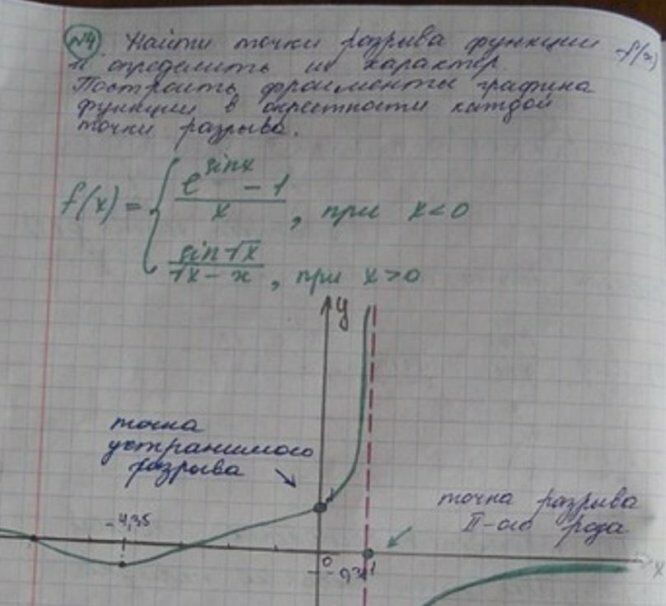 №4. Найти точки разрыва функции f(x)
и определить их характер.
Построить фрагменты графика
функции в окрестности каждой
точки разрыва.
f(x) = { (e^sinx − 1)/x, при x<0
sin√x/(√x − x), при x>0
y
точка
устранимого
разрыва
точка разрыва
II-ого рода
-4,35
0
1
x